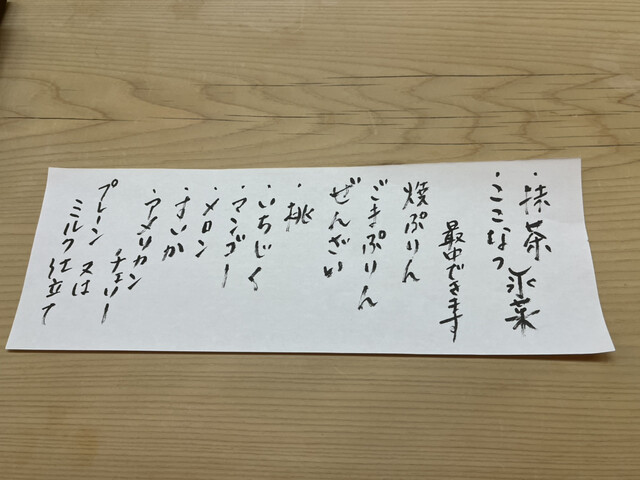 ・抹茶 氷菓
・ここなつ
最中できます
焼ぷりん
ごまぷりん
ぜんざい
・桃
・いちじく
・マンゴー
・メロン
・すいか
・アメリカン
チェリー
プレーン 又は
ミルク仕立て